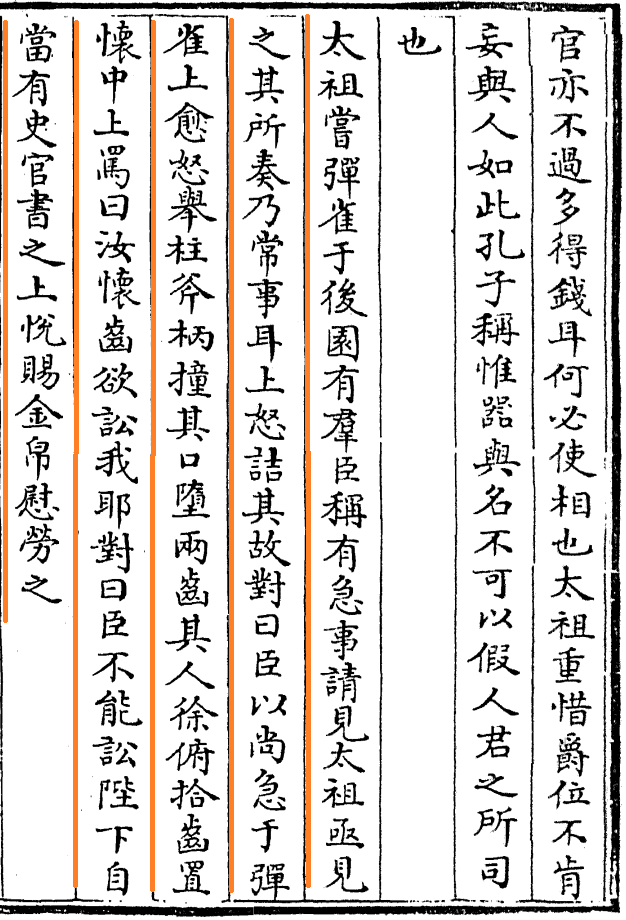 官亦不過多得錢耳何必使相也太祖重惜爵位不肯
妄與人如此孔子稱惟器與名不可以假人君之所司
也
太祖嘗彈雀于後園有羣臣稱有急事請見太祖亟見
之其所奏乃常事耳上怒詰其故對曰臣以尚急于彈
雀上愈怒舉柱斧柄撞其口墮兩齒其人徐俯拾齒置
懷中上罵曰汝懷齒欲訟我耶對曰臣不能訟陛下自
當有史官書之上恱賜金帛慰勞之